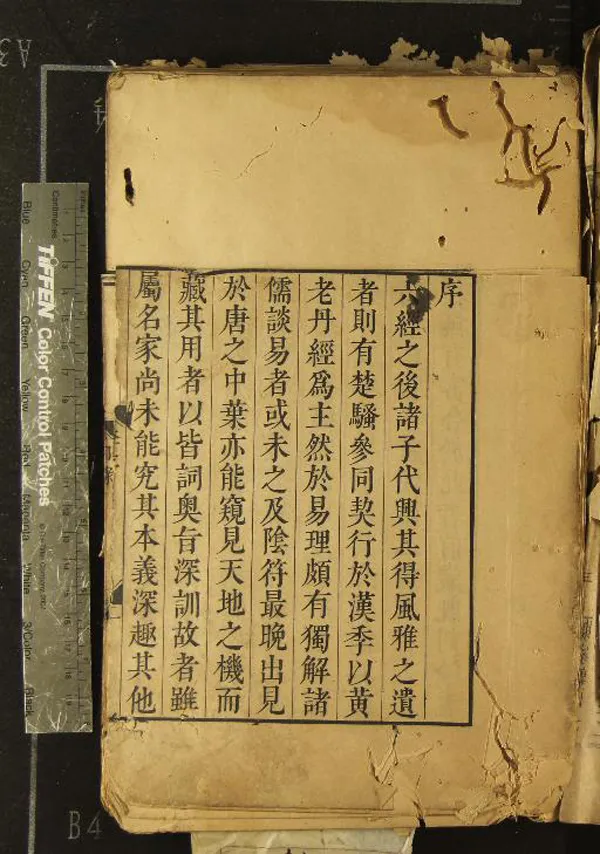 序
六經之後諸子代興其得風雅之遺
者則有楚騷參同契行於漢季以黃
老丹經爲主然於易理頗有獨解諸
儒談易者或未之及陰符最晚出見
於唐之中葉亦能窺見天地之機而
藏其用者以皆詞奧旨深訓故者雖
屬名家尚未能究其本義深趣其他
A3
B4
Inches
Centimetres
TIFFEN Color Control Patches
Blue
Cyan
Green
Yellow
Red
Magenta
White
3/Color
Black